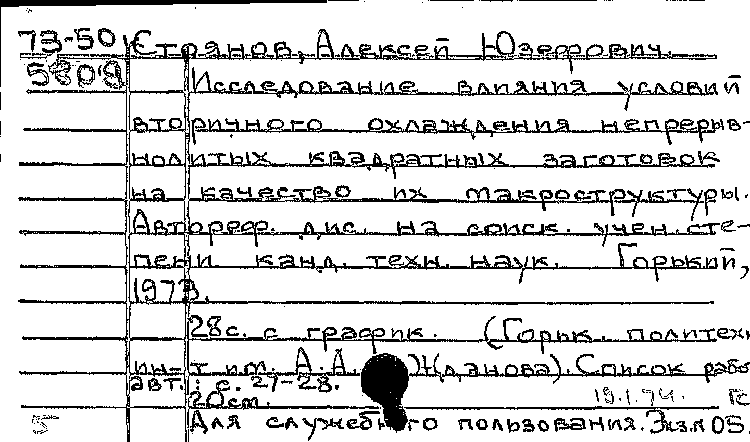 73-50 Стрянов, Алексей Юзефович.
5808 Исследование влияния условий
вторичного охлаждения непрерыв-
нолитых квадратных заготовок
на качество их макроструктуры.
Автореф. дис. на соиск. учен. сте-
пени канд. техн. наук. Горький,
1973.
28с. с график. (Горьк. политехн
ин-т им. А.А. Жданова). Список рабо
авт.: с. 27-28.
20см. 19.1.74.
Для служебного пользования. Экз. 05.